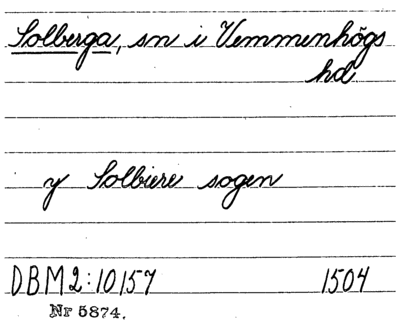 Solberga, sn i Vemmenhögs
hd
y Solbiere sogen
DBM2:10157 1504
Nr 5874.